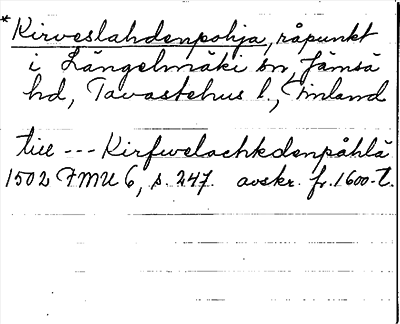 *Kirveslahdenpohja, råpunkt
i Längelmäki sn, Jämsä
hd, Tavastehus l., Finland
till --- Kirfwelachkdenpåhlä
1502 FMU 6, s. 247. avskr. fr. 1600-t.